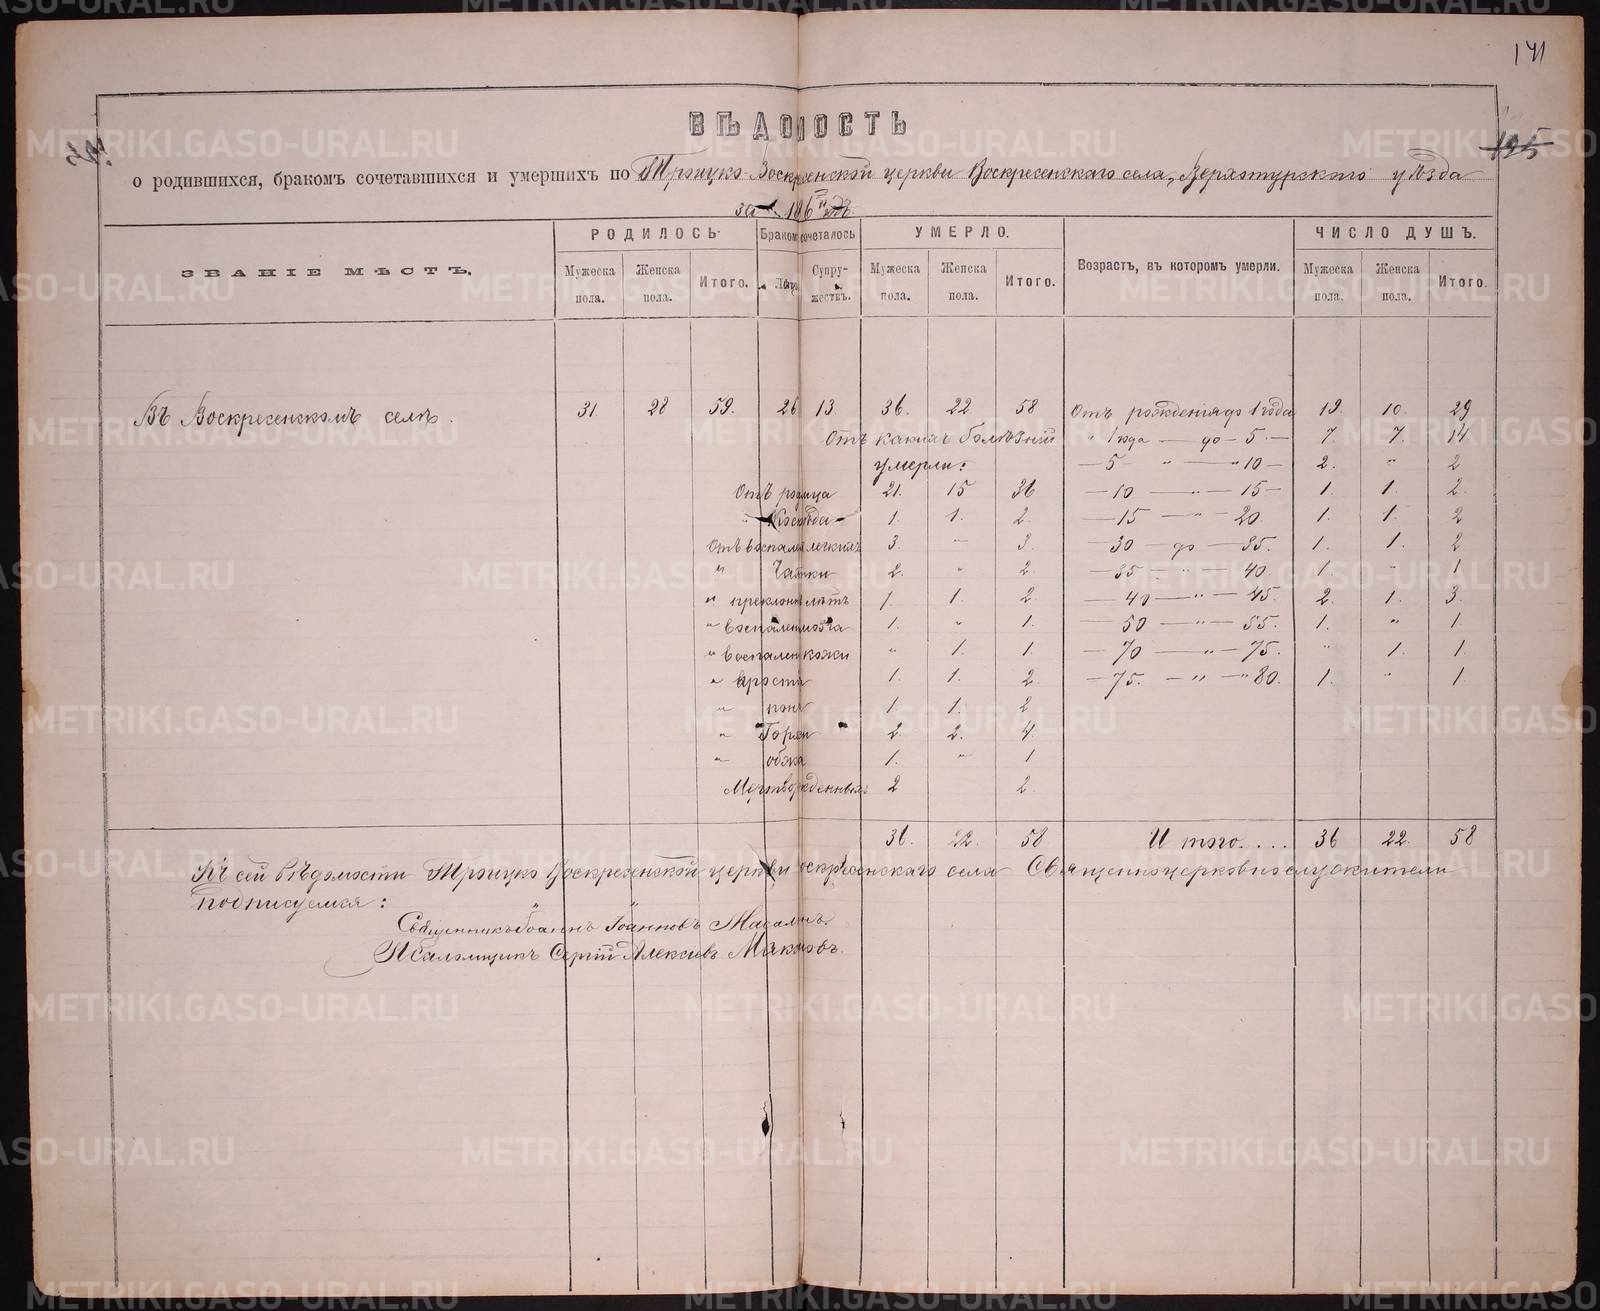 141
ВѢДОМОСТЬ
125
о родившихся, бракомъ сочетавшихся и умершихъ по Троицко-Воскресенской церкви Воскресенскаго села, Верхотурскаго уѣзда
за годъ.
ЗВАНІЕ МѢСТЪ. РОДИЛОСЬ Бракомъ сочеталось УМЕРЛО. Возрастъ, въ которомъ умерли. ЧИСЛО ДУШЪ.
Мужеска пола. Женска пола. Итого. Лицъ Супружествъ. Мужеска пола. Женска пола. Итого. Мужеска пола. Женска пола. Итого.
Въ Воскресенскомъ селѣ. 31. 28 59. 26 13. 36. 22 58 Отъ рожденія до 1 года 19. 10. 29
Отъ какихъ болѣзней " 1 года — до — 5. — 7. 7. 14
умерли: — 5 — " — " 10 — 2. " 2
Отъ родимца 21. 15 36 — 10 — " — 15 — 1. 1. 2.
" 1. 1. 2. — 15 — " — 20. 1. 1. 2
Отъ воспален легкихъ 3. — 3. — 30 — до — 35. 1. 1. 2
" Чахотки 2. " 2 — 35 — " — 40. 1. " 1
" преклон лѣтъ 1. 1. 2 — 40 — " — 45. 2. 1. 3.
" воспален мозга 1. " 1. — 50 — " — 55. 1. " 1.
" воспален кожи " 1. 1. — 70 — " — 75. " 1. 1.
" 1. 1. 2. — 75. — " — " 80. 1. " 1.
" 1. 1. 2
" 2. 2. 4.
" 1. " 1
Мертворожденныхъ 2 2
36. 22. 58 Итого.... 36 22. 58
Къ сей вѣдомости Троицко-Воскресенской церкви Воскресенскаго села Священноцерковнослужители
подписуемся:
Священникъ Іоаннъ Іоанновъ
Псаломщикъ Сергій Алексіевъ
METRIKI.GASO-URAL.RU